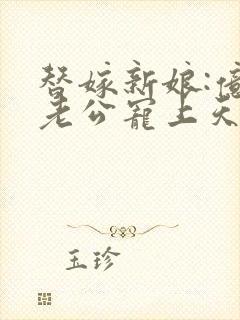 替嫁新娘:
老公宠上天
玉珍